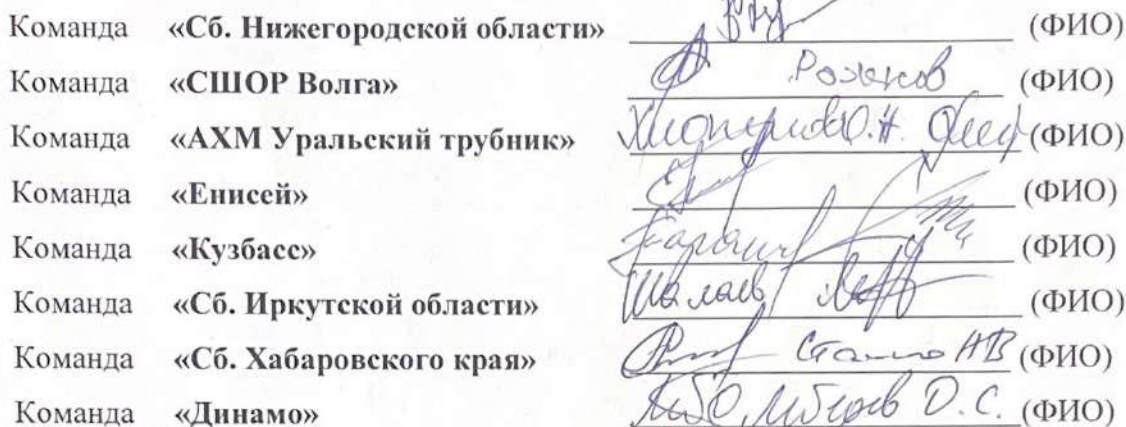 Команда «Сб. Нижегородской области» (ФИО)
Команда «СШОР Волга» Рожков (ФИО)
Команда «АХМ Уральский трубник» (ФИО)
Команда «Енисей» (ФИО)
Команда «Кузбасс» (ФИО)
Команда «Сб. Иркутской области» Шалаев (ФИО)
Команда «Сб. Хабаровского края» НВ (ФИО)
Команда «Динамо» Д.С. (ФИО)